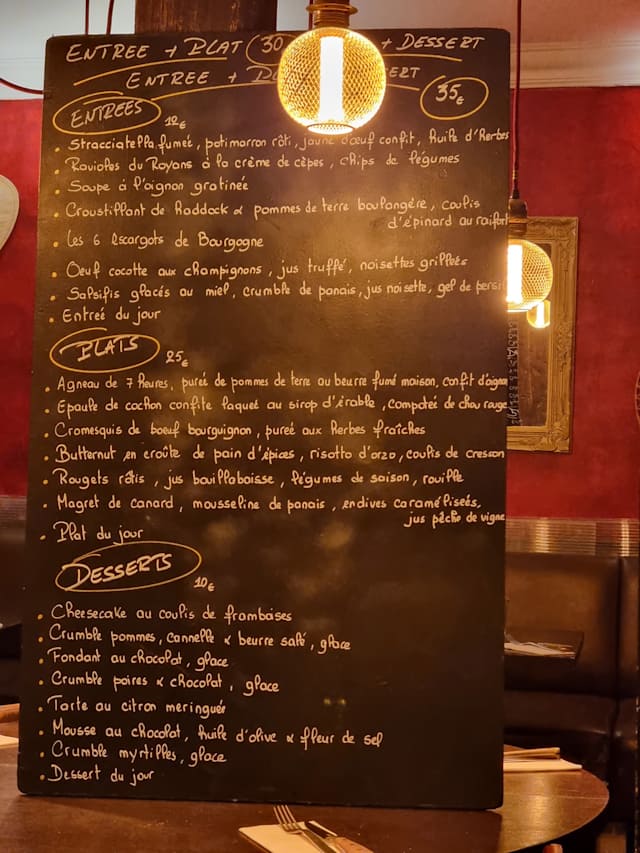 ENTREE + PLAT 30 + DESSERT
ENTREE + DESSERT 35€
ENTREES 12€
• Stracciatella fumée, potimarron rôti, jaune d'œuf confit, huile d'herbes
• Ravioles du Royans à la crème de cèpes, chips de légumes
• Soupe à l'oignon gratinée
• Croustillant de haddock & pommes de terre boulangère, coulis
d'épinard au raifort
• Les 6 escargots de Bourgogne
• Oeuf cocotte aux champignons, jus truffé, noisettes grillées
• Salsifis glacés au miel, crumble de panais, jus noisette, gel de persil
• Entrée du jour
PLATS 25€
• Agneau de 7 heures, pureé de pommes de terre au beurre fumé maison, confit d'oignon
• Epaule de cochon confite laquée au sirop d'érable, compotée de chou rouge
• Cromesquis de boeuf bourguignon, pureé aux herbes fraîches
• Butternut en croûte de pain d'épices, risotto d'orzo, coulis de cresson
• Rougets rôtis, jus bouillabaisse, légumes de saison, rouille
• Magret de canard, mousseline de panais, endives caramélisées,
jus pêche de vigne
• Plat du jour
DESSERTS 10€
• Cheesecake au coulis de framboises
• Crumble pommes, cannelle & beurre salé, glace
• Fondant au chocolat, glace
• Crumble poires & chocolat, glace
• Tarte au citron meringuée
• Mousse au chocolat, huile d'olive & fleur de sel
• Crumble myrtilles, glace
• Dessert du jour